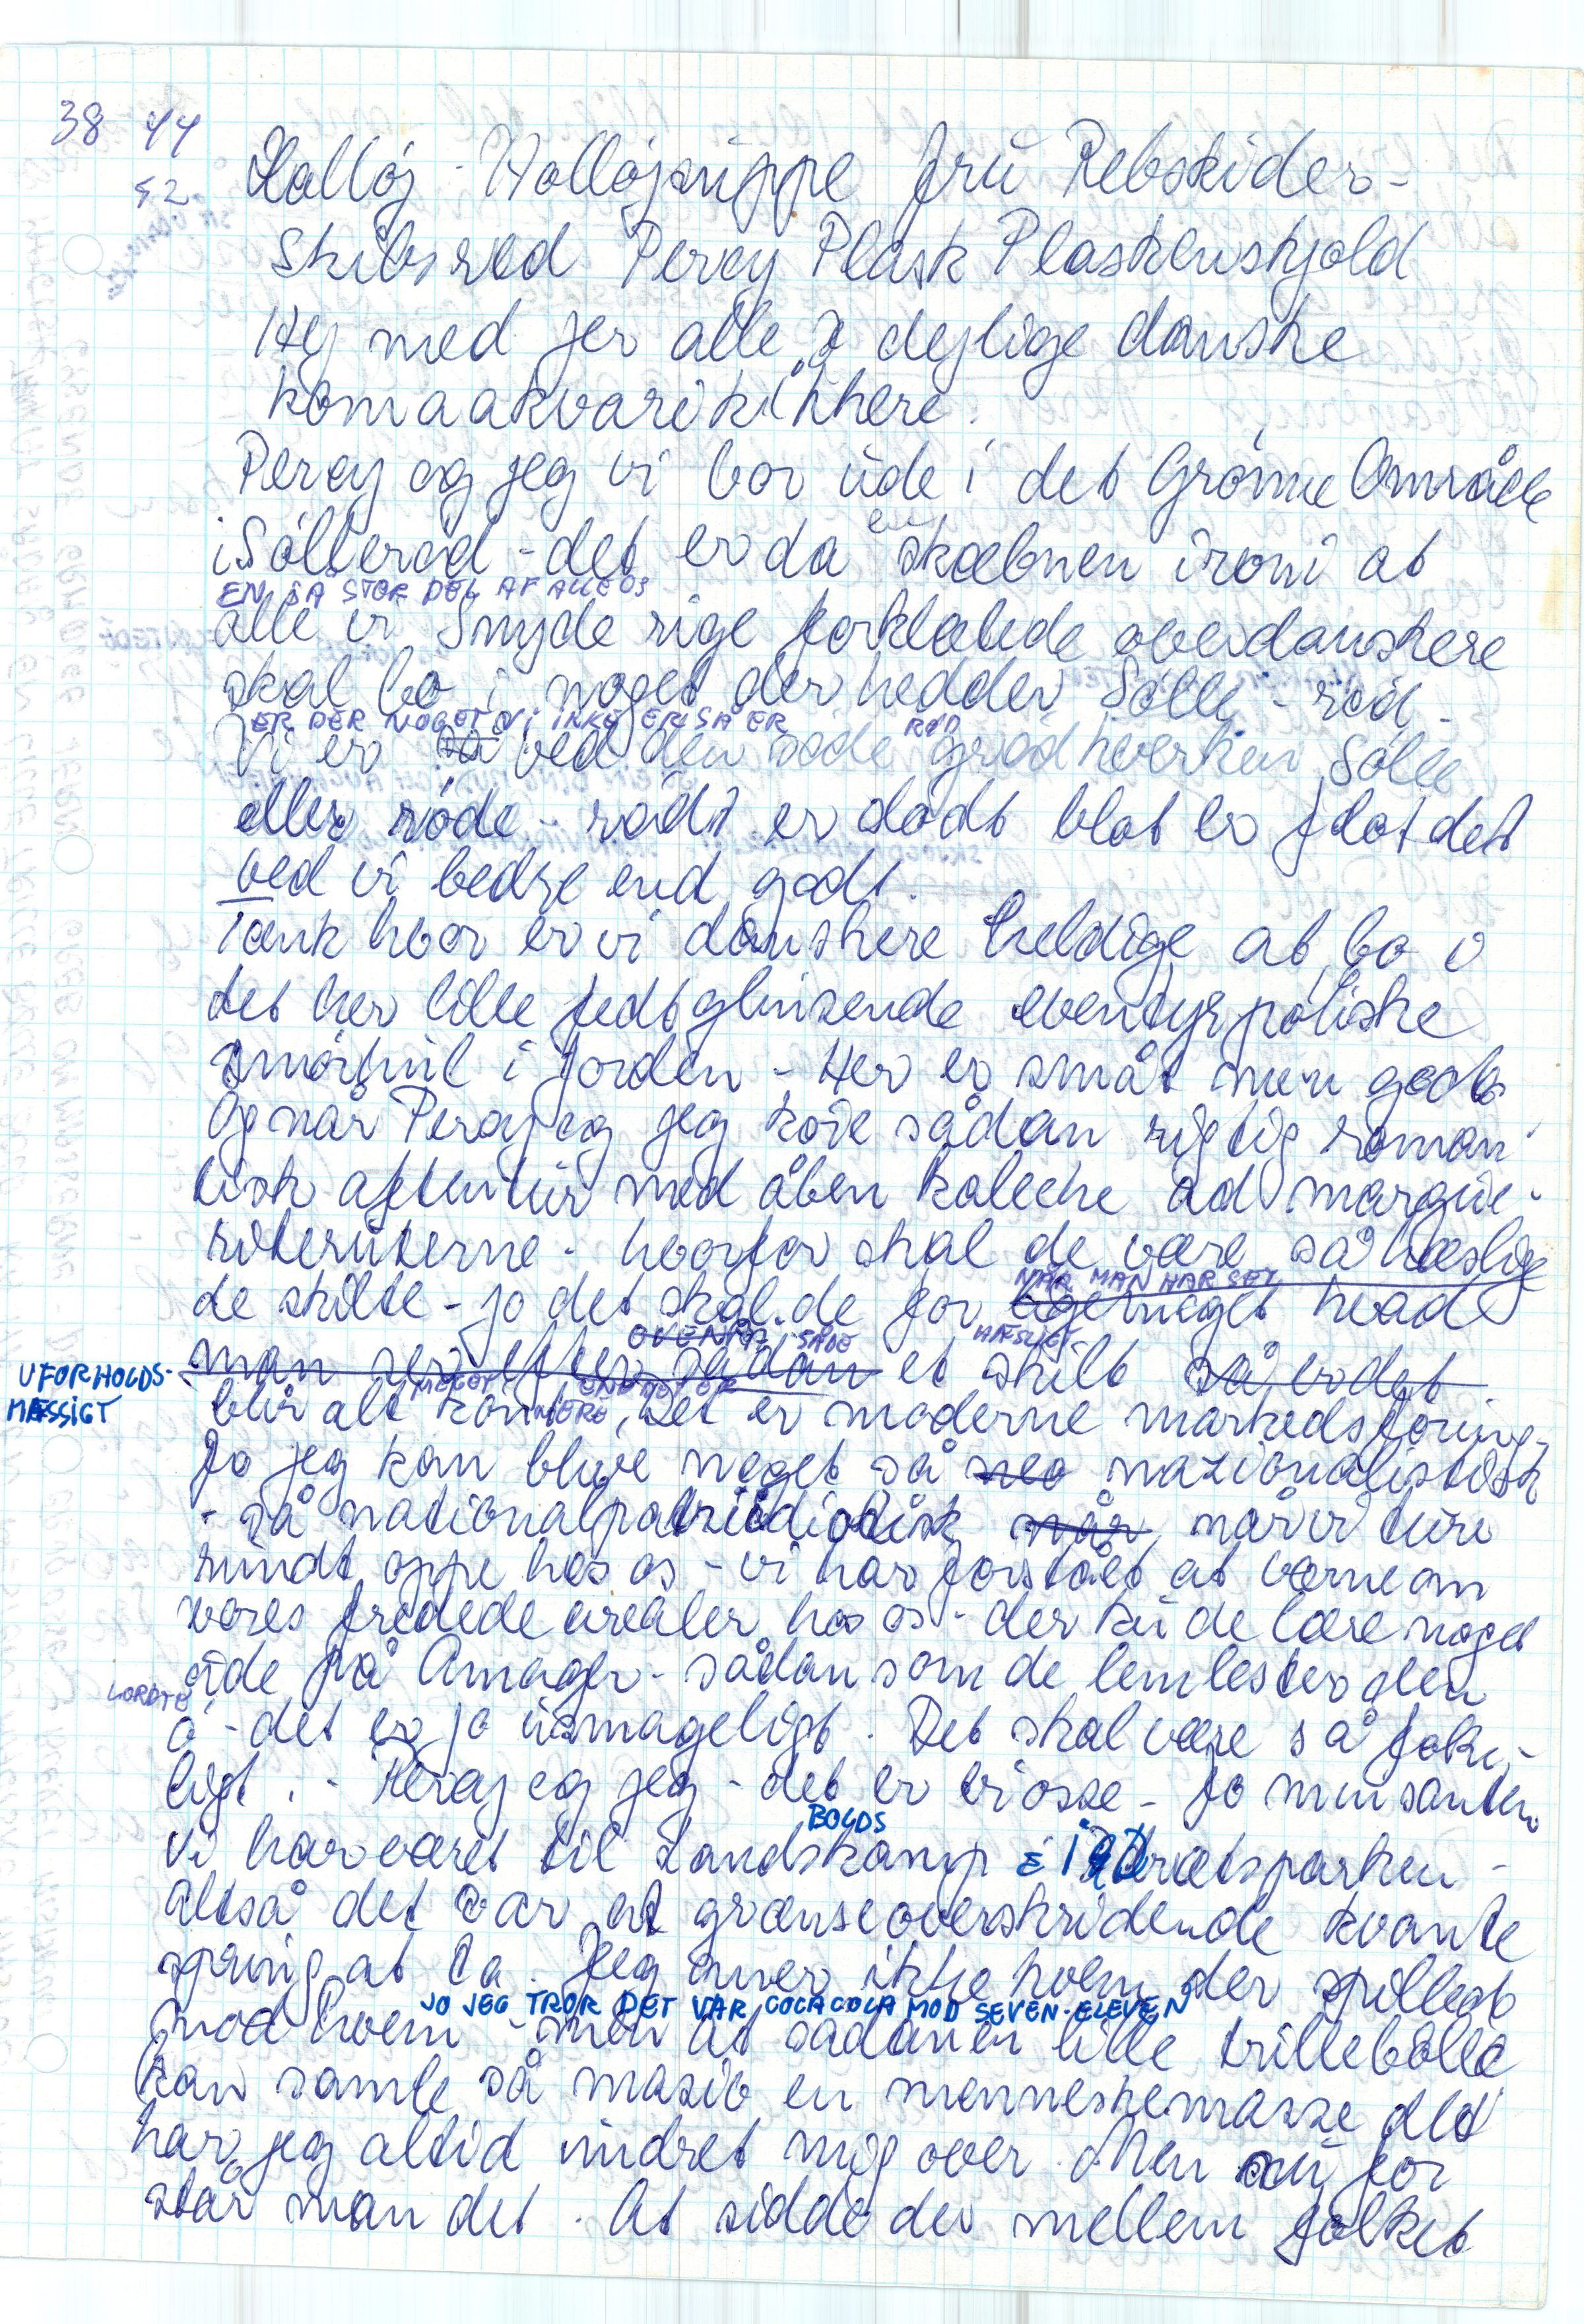 38 44
52.
Halløj - Halløjsuppe frú Rebskider-
Skibsred Percy Plask Plaskenskjold
Hej med jer alle I dejlige danske
komaakvarikikkere.
Percy og jeg vi bor ude i det Grønne Område
i Sølleröd - det er da en skæbnen ironi at
EN SÅ STOR DEL AF ALLE OS
alle vi Snyde rige forklædte overdanskere
skal bo i noget der hedder Sølle - rød -
ER DER NOGET VI IKKE ER SÅ ER RØD
Vi er så ved den søde grød hverken Sølle
eller røde - rødt er dødt blot er flot det
ved vi bedre end godt.
Tænk hvor er vi danskere heldige at bo i
det her lille fedtglinsende eventyrpoliske
smørhul i Jorden - Her er småt men godt
Og når Percy og jeg köre sådan rigtig roman-
tisk aftentur med åben kaleche ad margue-
riteruterne - hvorfor skal de være så hæslige
NÅR MAN HAR SET
de skilte - jo det skal de for lige meget hvad
OVENPÅ SÅDE HÆSLIGT
UFORHOLDS-
MÆSSIGT
man ser efter sådan et skilt så er det
MEGET MERE END DET ER
blir alt kønt. Det er moderne markedsføring -
Jo jeg kan blive noget så neo nazionalistisk
- så nationalpatriidiodisk når når vi ture
rundt oppe hos os - vi har forstået at værne om
vores fredede arealer hos os - der ku de lære noget
ude på Amager - sådan som de lemlester den
LORDTE
ö - det er jo usmageligt. Det skal være så folke-
ligt. - Percy og jeg - det er vi osse - Jo min santen
BOLDS
Vi har været til Landskamp i idrætsparken -
altså det var et grænseoverskridende kvante
spring at ta. Jeg aner ikke hvem der spillede
JO JEG TROR DET VAR COCACOLA MOD SEVEN-ELEVEN
mod hvem - men at sådan en lille trillebolle
kan samle så masiv en menneskemasse det
har jeg altid undret mig over. Men nu for
står man det. At sidde der mellem folket